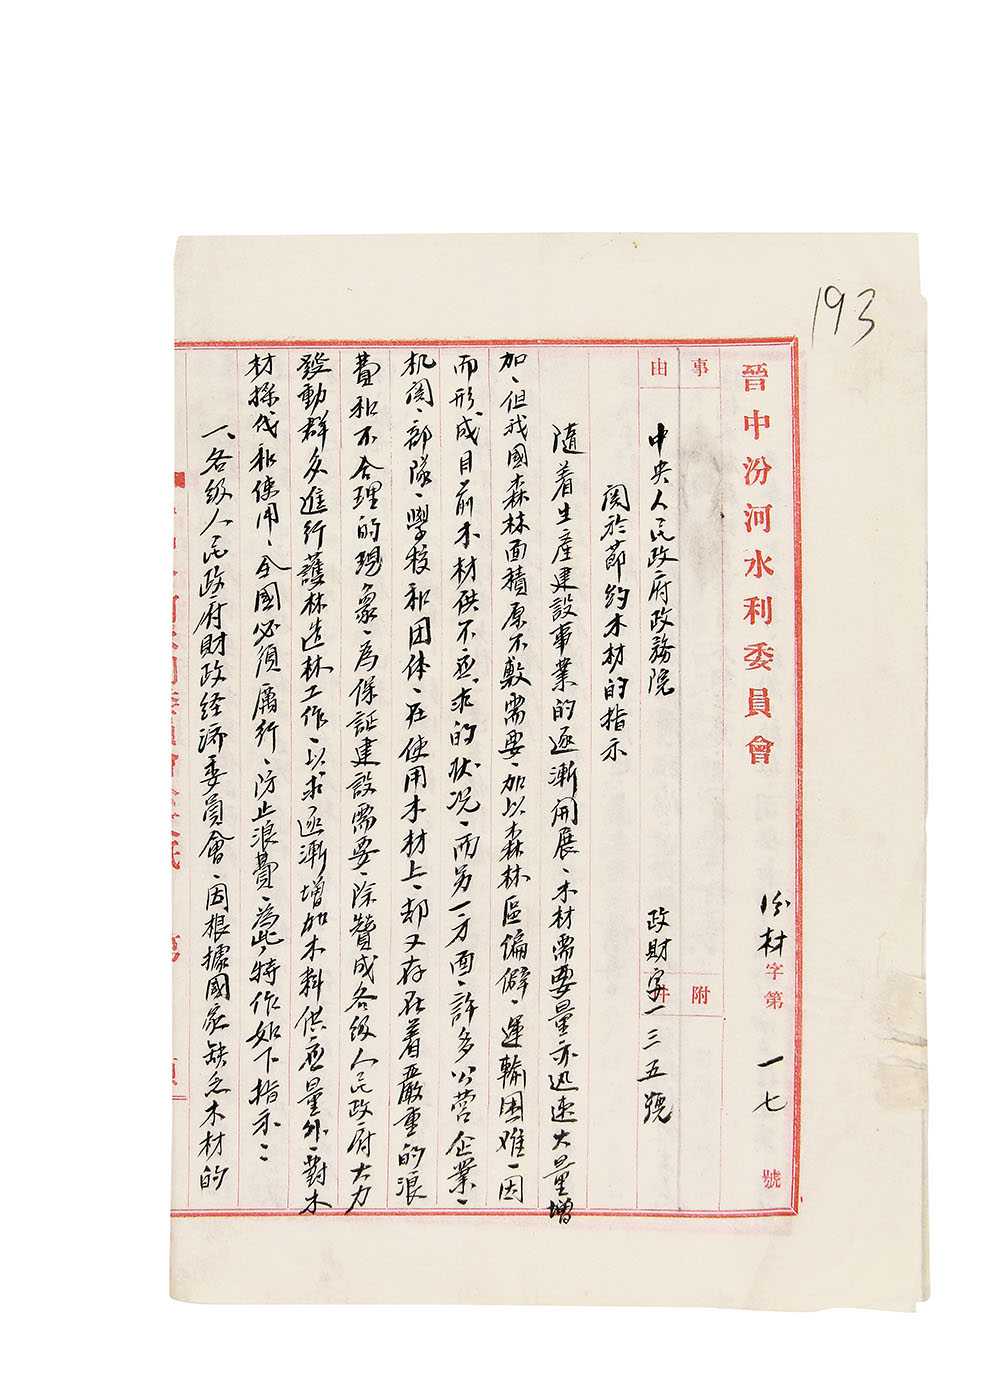 193
晉中汾河水利委員會
汾材字第一七號
事由
附件
中央人民政府政務院　政財字一三五號
関於節約木材的指示
隨着生產建設事業的逐漸開展、木材需要量亦迅速大量增
加、但我國森林面積原不敷需要、加以森林區偏僻、運輸困难、因
而形成目前木材供不应求的状况、而另一方面、許多公营企業、
机関、部隊、學校和团体、在使用木材上、却又存在着嚴重的浪
費和不合理的現象、為保証建設需要、除贊成各级人民政府大力
發動群众進行護林造林工作、以求逐漸增加木料供应量外、對木
材採伐和使用、全國必須厲行、防止浪費、為此、特作如下指示：
一、各级人民政府財政经済委員會、因根據國家缺乏木材的